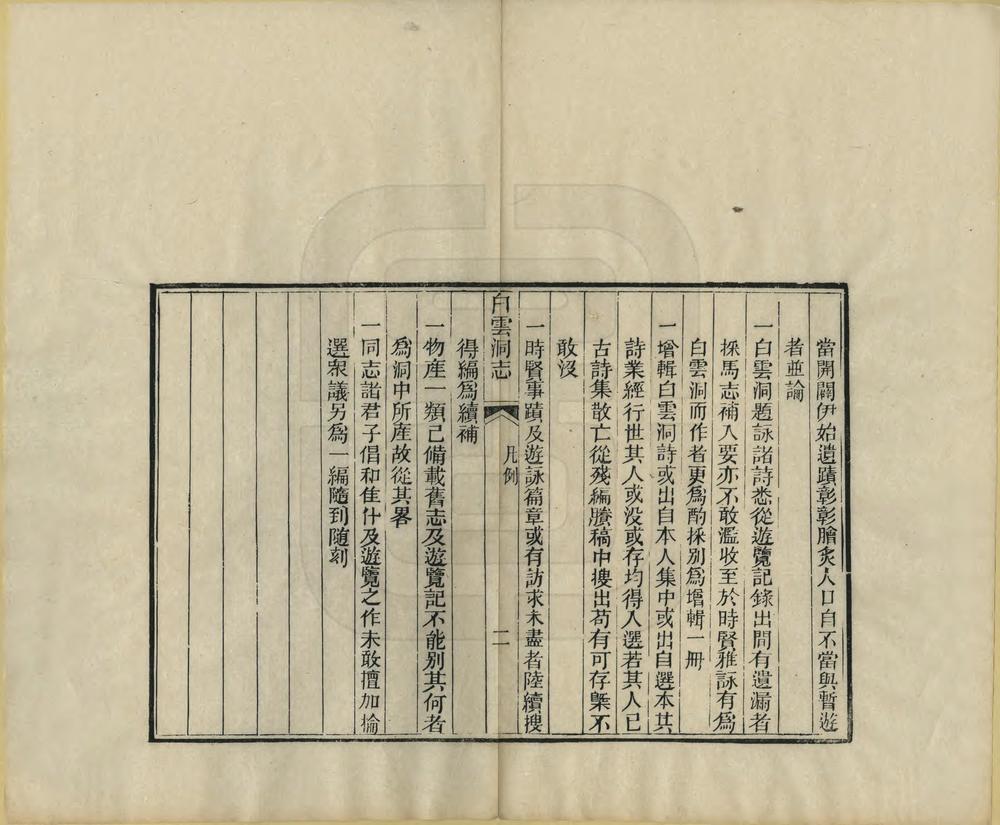 當開闢伊始遺蹟彰彰膾炙人口自不當與暫遊
者並論
一白雲洞題詠諸詩悉從遊覽記錄出間有遺漏者
採馬志補入要亦不敢濫收至於時賢雅詠有爲
白雲洞而作者更爲酌採別爲增輯一冊
一增輯白雲洞詩或出自本人集中或出自選本其
詩業經行世其人或没或存均得入選若其人已
古詩集散亡從殘編賸稿中搜出苟有可存槩不
敢没
一時賢事蹟及遊詠篇章或有訪求未盡者陸續搜
白雲洞志
凡例
二
得編爲續補
一物產一類已備載舊志及遊覽記不能別其何者
爲洞中所產故從其畧
一同志諸君子倡和佳什及遊覽之作未敢擅加掄
選衆議另爲一編隨到随刻